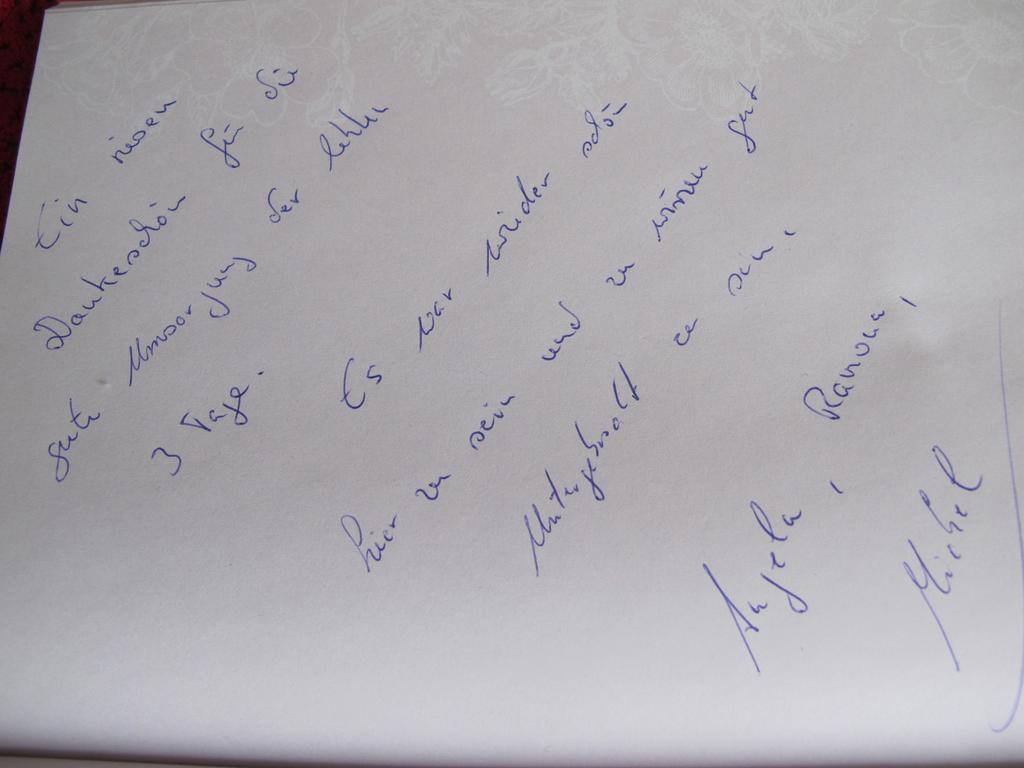 Ein riesen
Dankeschön für die
gute Umsorgung der letzten
3 Tage.
Es war wieder schön
hier zu sein und zu wissen gut
Untergebracht zu sein,
Angela, Ramona,
Michel